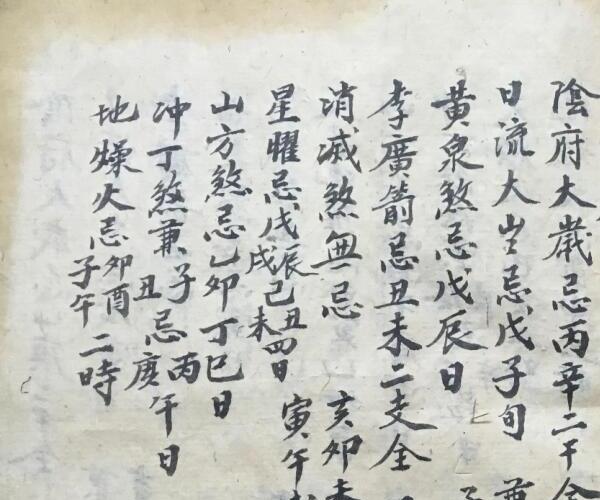 陰府太歲忌丙辛二干全
日流太歲忌戊子旬
黃泉煞忌戊辰日
李廣箭忌丑未二支全
消滅煞無忌 亥卯未
寅午
星曜忌戊辰戊戌己丑己未四日
山方煞忌乙卯丁巳日
冲丁煞兼子丑忌丙庚午日
地燥火忌卯酉子午二時